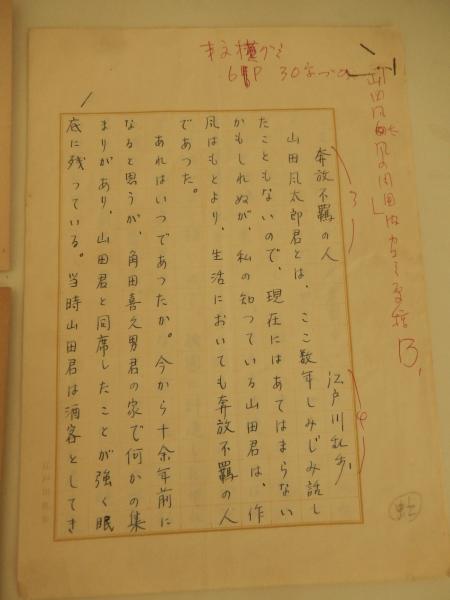 本文横組み
6号P 30字づめ
奔放不羈の人
江戸川乱歩
山田風太郎君とは、ここ数年しみじみ話し
たこともないので、現在にはあてはまらない
かもしれぬが、私の知つている山田君は、作
風はもとより、生活においても奔放不羈の人
であつた。
あれはいつであつたか。今から十余年前に
なると思うが、角田喜久男君の家で何かの集
まりがあり、山田君と同席したことが強く眼
底に残っている。当時山田君は酒客としてき